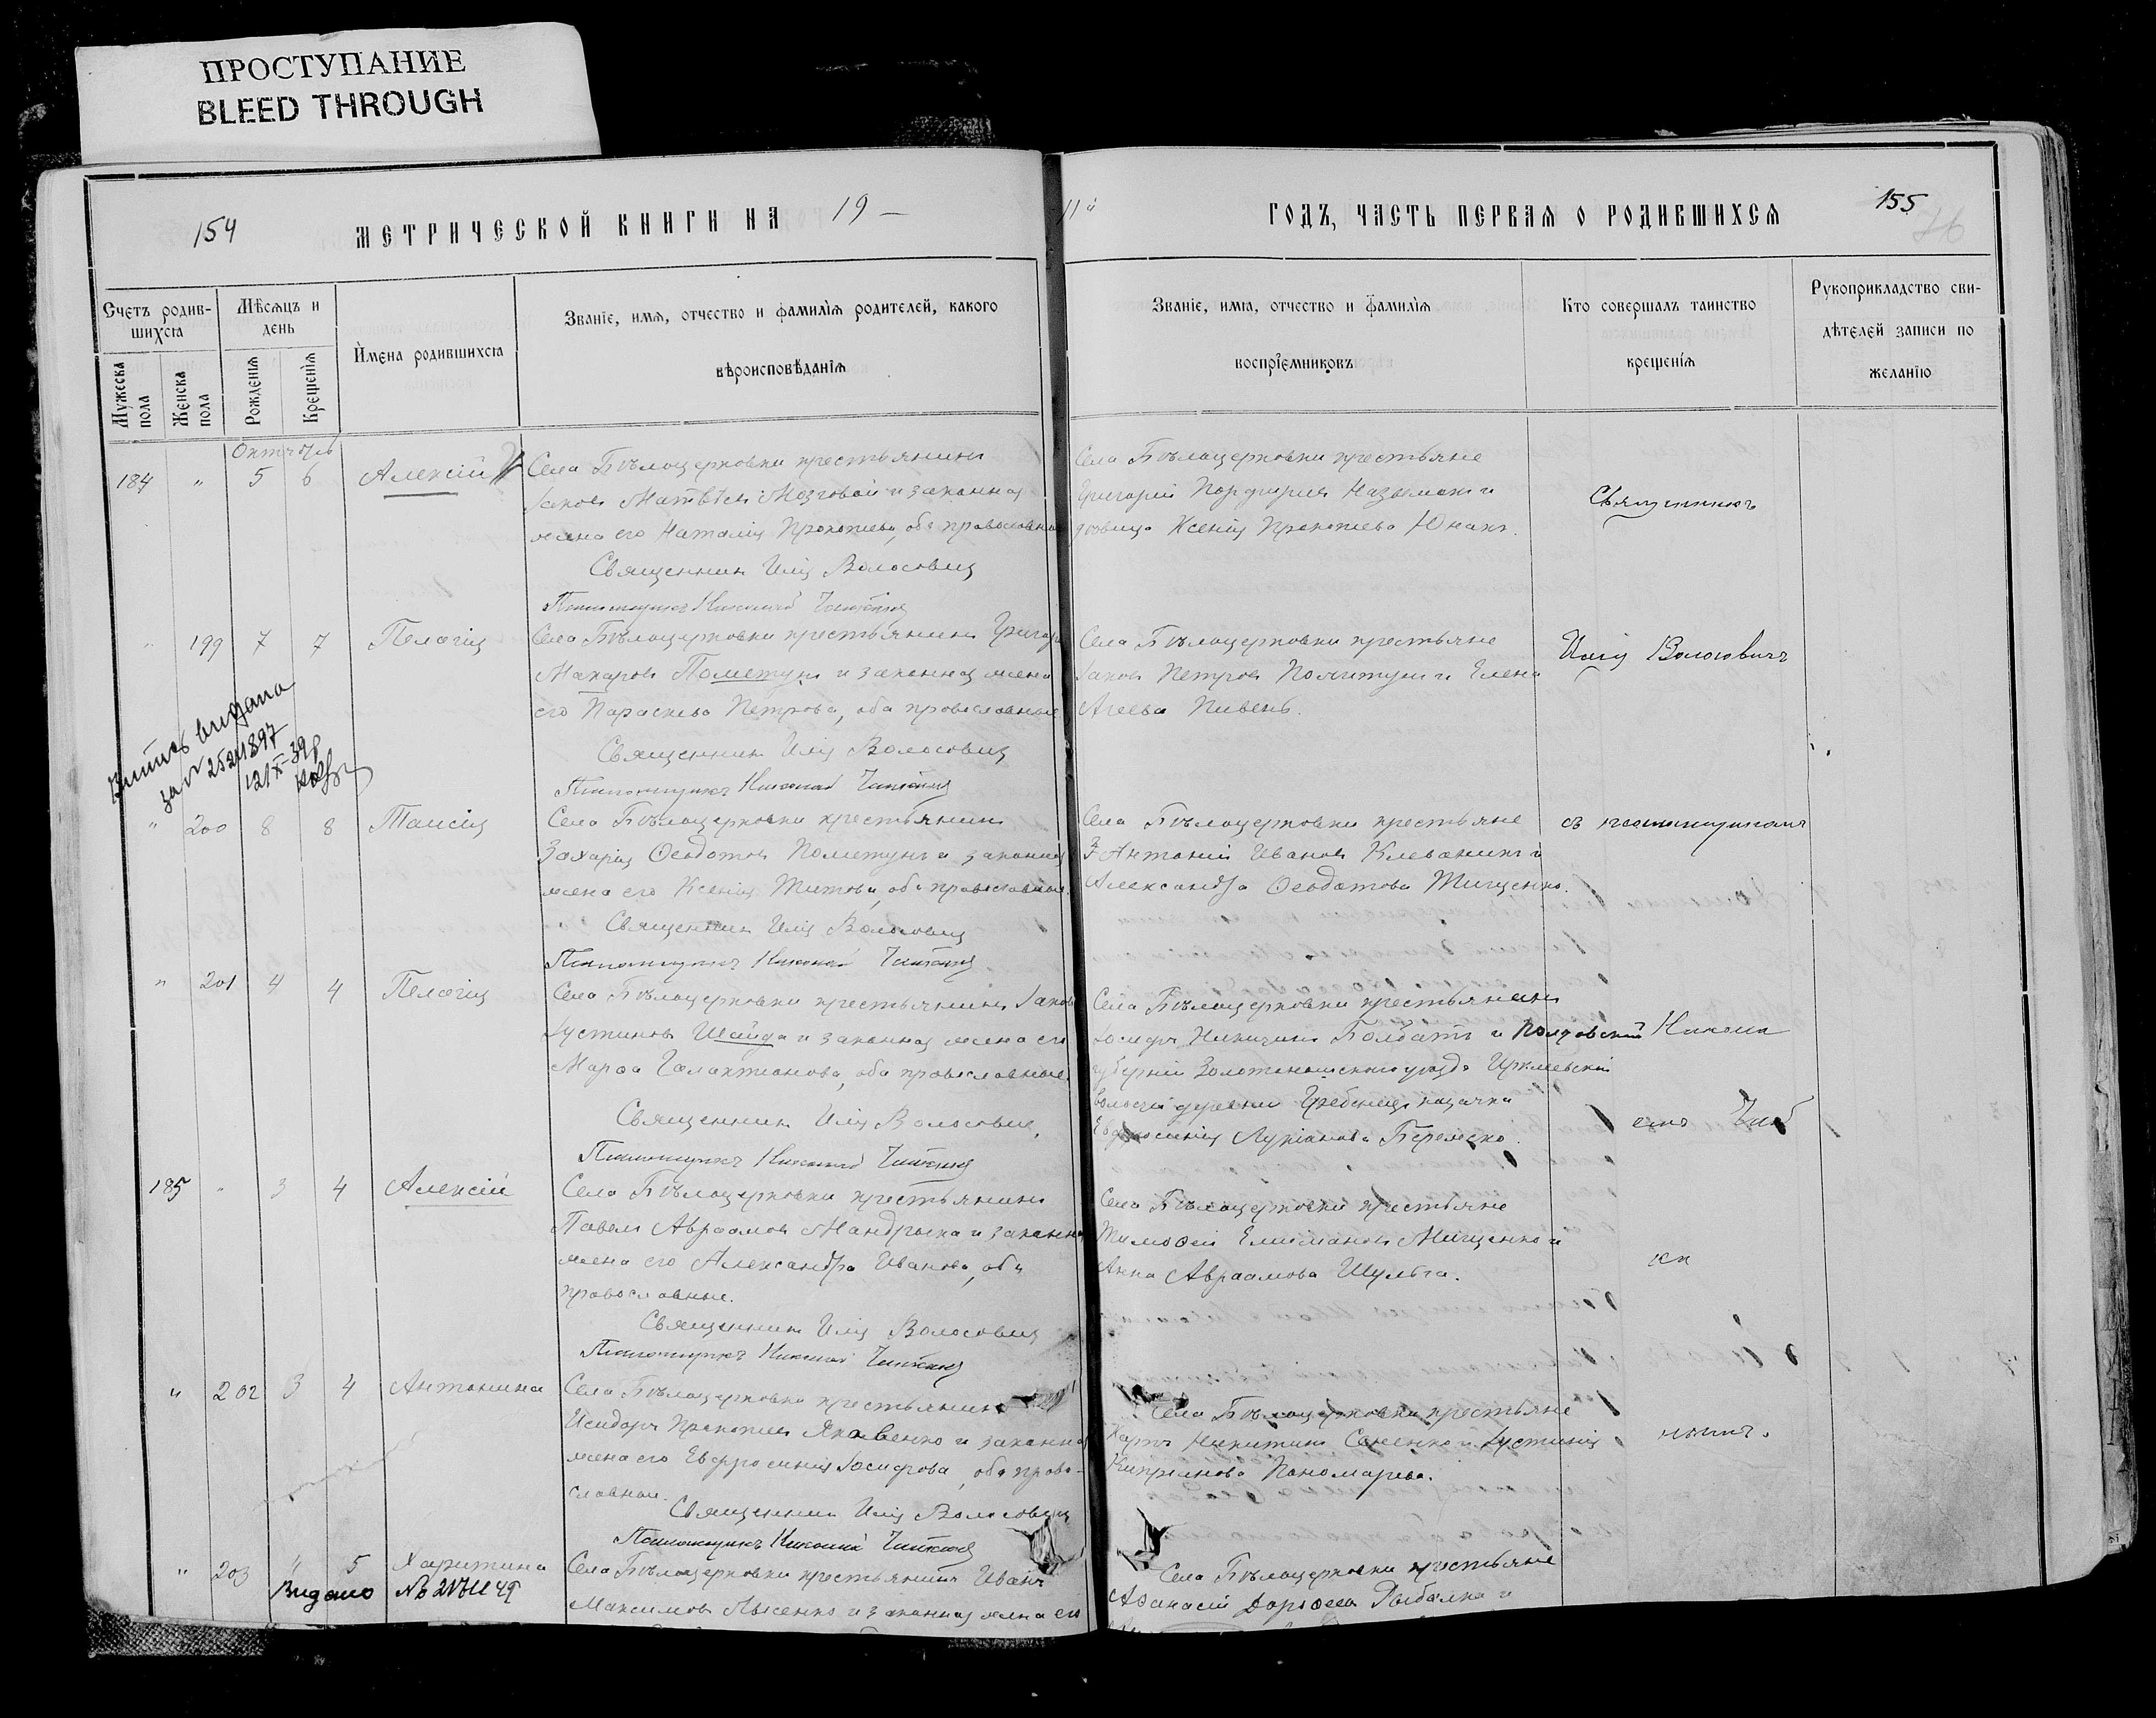 ПРОСТУПАНИЕ
BLEED THROUGH
154
МЕТРИЧЕСКОЙ КНИГИ НА 19 —
11й ГОДЪ, ЧАСТЬ ПЕРВАЯ О РОДИВШИХСЯ
155
Счетъ родив-
шихся
Мѣсяцъ и
день
Имена родившихся
Званіе, имя, отчество и фамилія родителей, какого
вѣроисповѣданія
Мужеска пола
Женска пола
Рожденія
Крещенія
Званіе, имя, отчество и фамилія
воспріемниковъ
Кто совершалъ таинство
крещенія
Рукоприкладство сви-
дѣтелей записи по
желанію
Октябрь
184 " 5 6 Алексій Села Бѣлоцерковки крестьянинъ
Іаковъ Матвѣевъ Мозговой и законная
жена его Наталія Прокопіева, оба православные
Священникъ Илія Волосовичъ
Псаломщикъ Николай
Села Бѣлоцерковки крестьяне
Григорій Порфиріевъ и
дѣвица Ксенія Прокопіева Юнакъ.
Священникъ
" 199 7 7 Пелагія Села Бѣлоцерковки крестьянинъ Григорій
Макаровъ Пометунъ и законная жена
его Параскева Петрова, оба православные
Священникъ Илія Волосовичъ
Псаломщикъ Николай
Села Бѣлоцерковки крестьяне
Іаковъ Петровъ и Елена
Агеева Пивень.
Илія Волосовичъ
Витяг видано
за № 2521897
121X-39р
" 200 8 8 Таисія Села Бѣлоцерковки крестьянинъ
Захарія Ѳеодотовъ Пометунъ и законная
жена его Ксенія Титова, оба православные.
Священникъ Илія Волосовичъ
Псаломщикъ Николай
Села Бѣлоцерковки крестьяне
Антоній Ивановъ и
Александра Ѳеодотова Тищенко.
съ псаломщикомъ
" 201 4 4 Пелагія Села Бѣлоцерковки крестьянинъ Іаковъ
Іустиновъ Шайда и законная жена его
Марѳа Галактіонова, оба православные
Священникъ Илія Волосовичъ
Псаломщикъ Николай
Села Бѣлоцерковки крестьянинъ
Іосифъ Никитинъ и Полтавской
губерніи Золотоношскаго уѣзда Ирклѣевской
волости деревни казачка
Евфросинія Лукіанова
Никола
емъ
185 " 3 4 Алексій Села Бѣлоцерковки крестьянинъ
Павелъ Авраамовъ Мандрыка и законная
жена его Александра Иванова, оба
православные.
Священникъ Илія Волосовичъ
Псаломщикъ Николай
Села Бѣлоцерковки крестьяне
Тимоѳей Мищенко и
Анна Авраамова Шульга.
" 202 3 4 Антонина Села Бѣлоцерковки крестьянинъ
Исидоръ Прокопіевъ Яковенко и законная
жена его Евфросинія Іосифова, оба право-
славные.
Священникъ Илія Волосовичъ
Псаломщикъ Николай
Села Бѣлоцерковки крестьяне
Никитинъ и Іустинія
Кипріанова Пономарева.
" 203 4 5 Харитина Села Бѣлоцерковки крестьянинъ Иванъ
Видано №
Максимовъ Лысенко и законная жена его
Села Бѣлоцерковки крестьяне
Аѳанасій Дороѳеевъ Рыбалка и